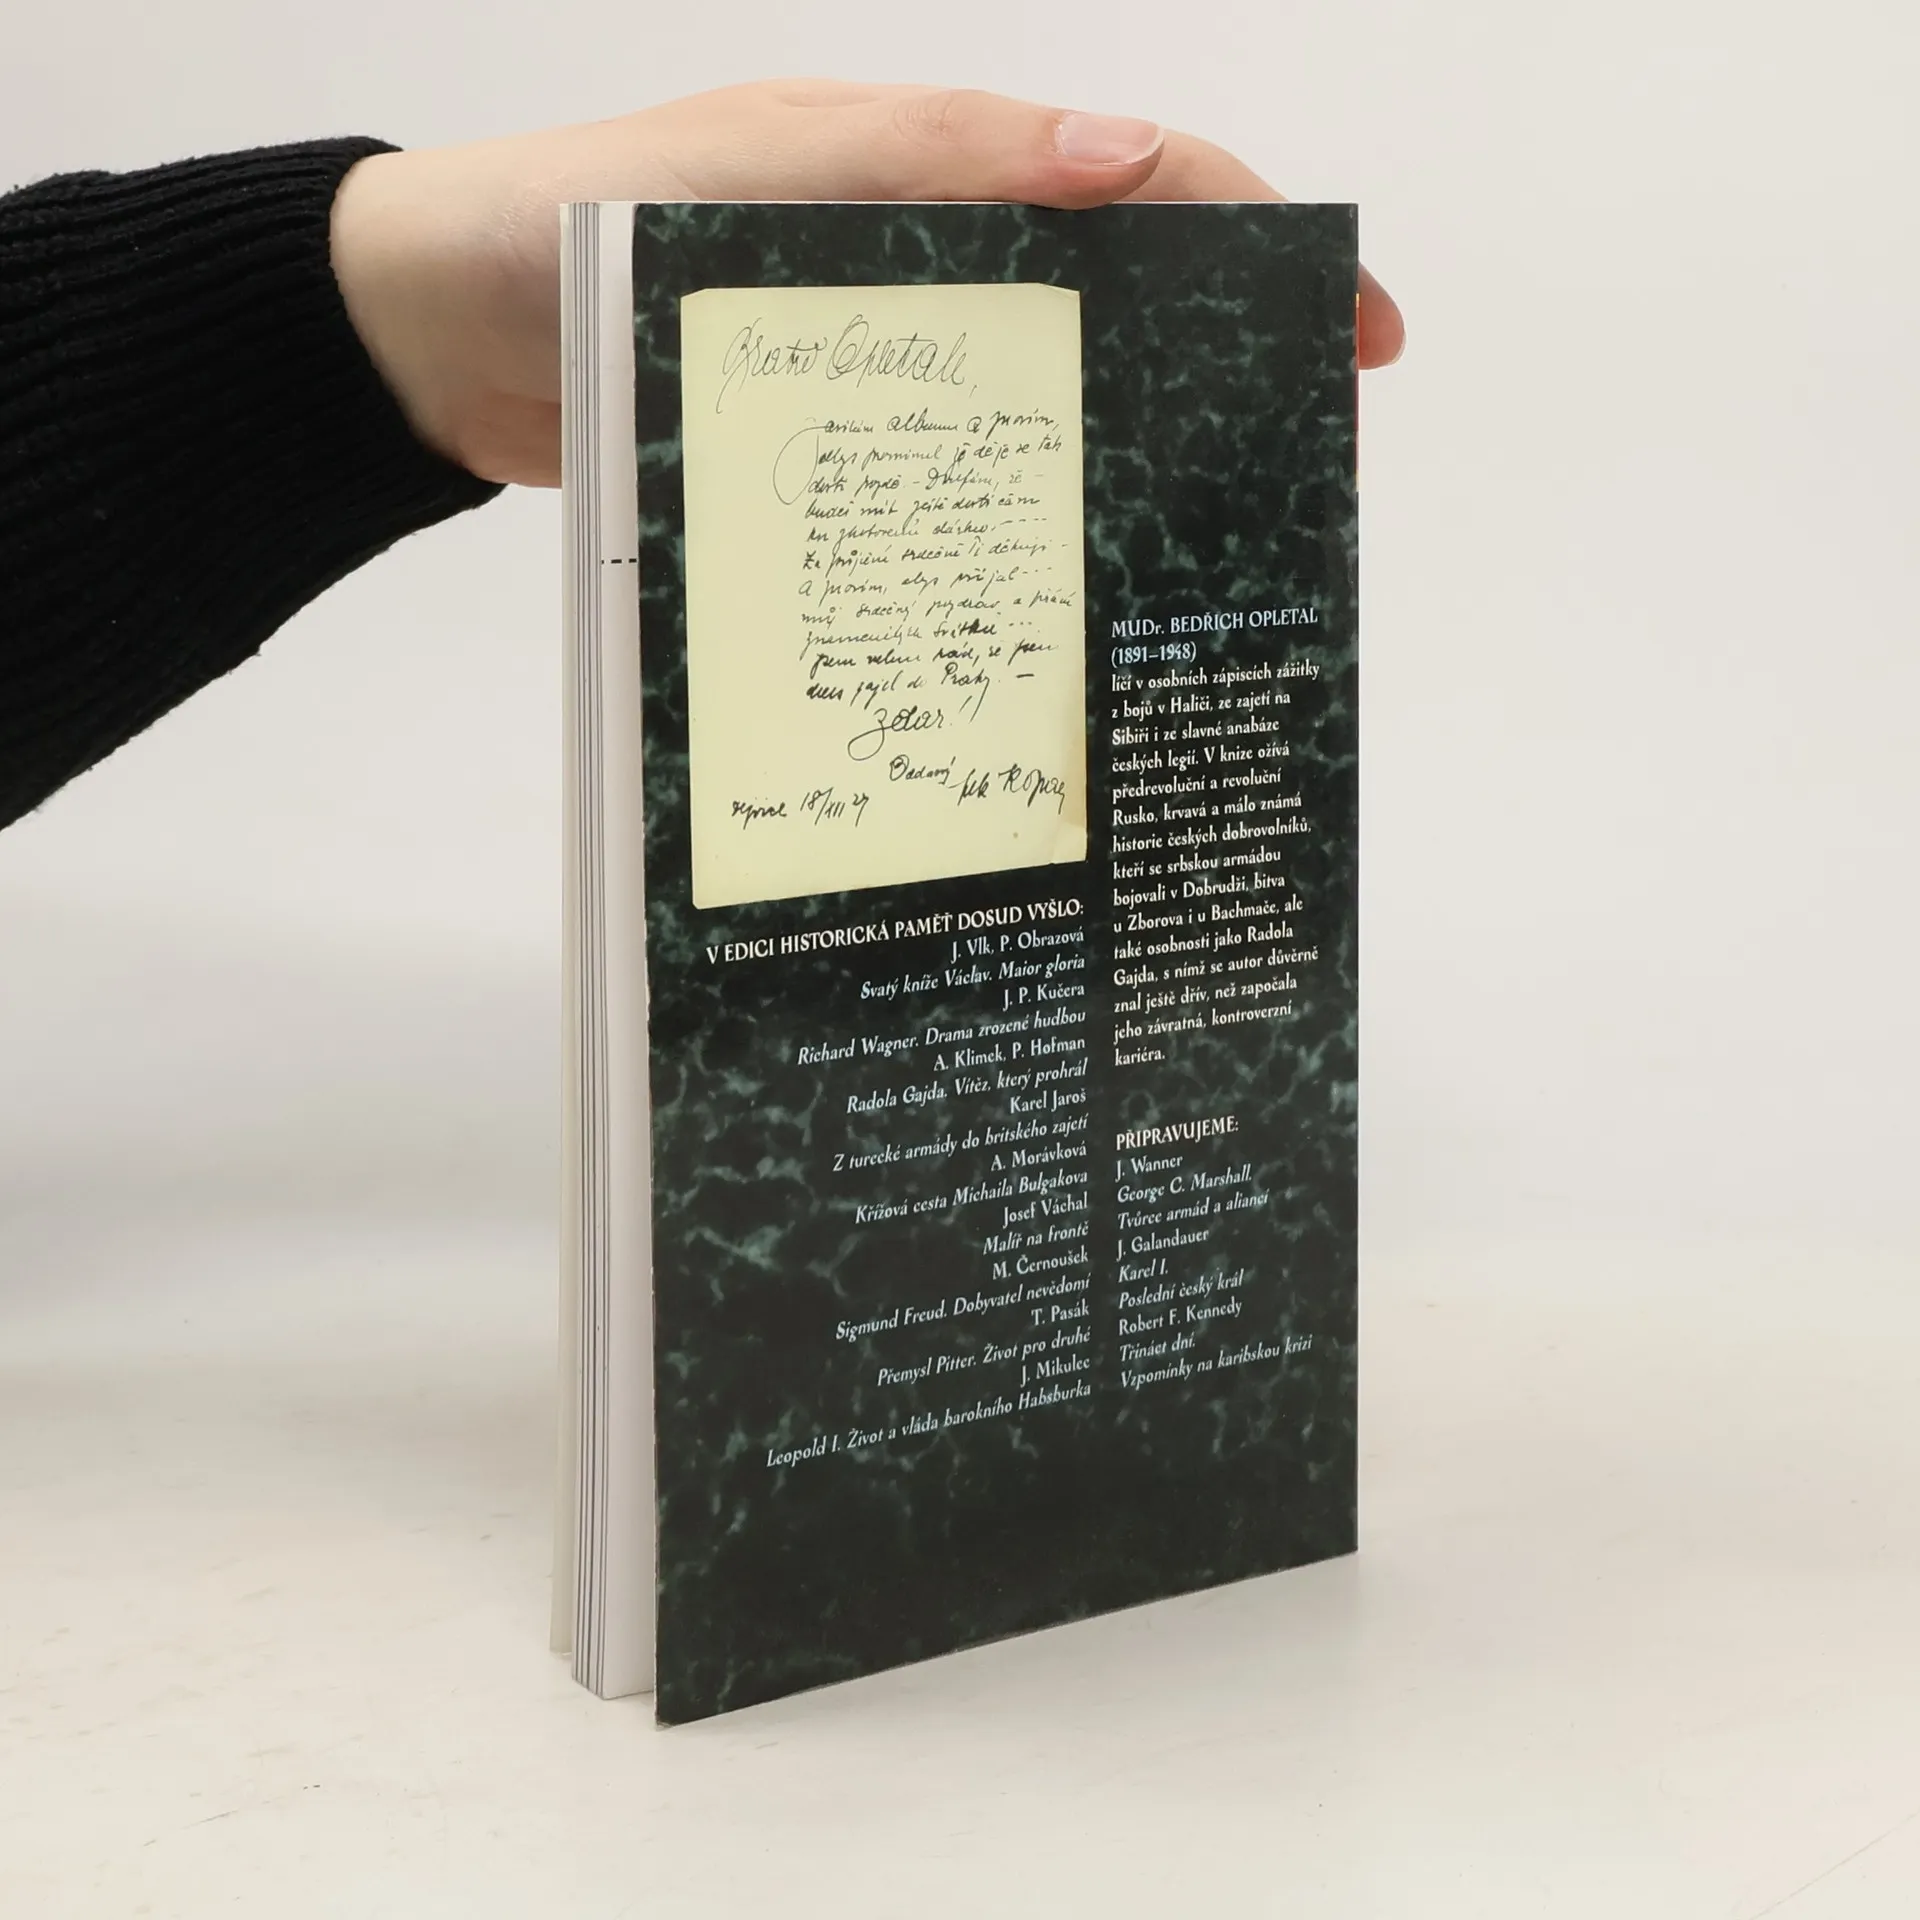 Bratře Opletale,
album a prosím,
abys prominul že děje se tak
dosti pozdě. - Doufám, že -
budeš mít ještě dosti času
ku zhotovení
Za půjčení srdečně Ti děkuji -
A prosím, abys přijal - - -
můj srdečný pozdrav a přání
Svátků - - -
jsem velmi rád, že jsem
dnes zajel do Prahy. -
Zdar!
Oddaný
18/XII 27
MUDr. BEDŘICH OPLETAL
(1891–1948)
líčí v osobních zápiscích zážitky
z bojů v Haliči, ze zajetí na
Sibiři i ze slavné anabáze
českých legií. V knize ožívá
předrevoluční a revoluční
Rusko, krvavá a málo známá
historie českých dobrovolníků,
kteří se srbskou armádou
bojovali v Dobrudži, bitva
u Zborova i u Bachmače, ale
také osobnosti jako Radola
Gajda, s nímž se autor důvěrně
znal ještě dřív, než započala
jeho závratná, kontroverzní
kariéra.
V EDICI HISTORICKÁ PAMĚŤ DOSUD VYŠLO:
J. Vlk, P. Obrazová
Svatý kníže Václav. Maior gloria
J. P. Kučera
Richard Wagner. Drama zrozené hudbou
A. Klimek, P. Hofman
Radola Gajda. Vítěz, který prohrál
Karel Jaroš
Z turecké armády do britského zajetí
A. Morávková
Křížová cesta Michaila Bulgakova
Josef Váchal
Malíř na frontě
M. Černoušek
Sigmund Freud. Dobyvatel nevědomí
T. Pasák
Přemysl Pitter. Život pro druhé
J. Mikulec
Leopold I. Život a vláda barokního Habsburka
PŘIPRAVUJEME:
J. Wanner
George C. Marshall.
Tvůrce armád a aliancí
J. Galandauer
Karel I.
Poslední český král
Robert F. Kennedy
Třináct dní.
Vzpomínky na karibskou krizi